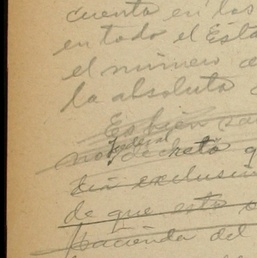 cuenta en los
en todo el Esta
el número d
la absoluta
Es bien sa
federal
no decreto q
dio exclusiv
de que esto
hacienda del